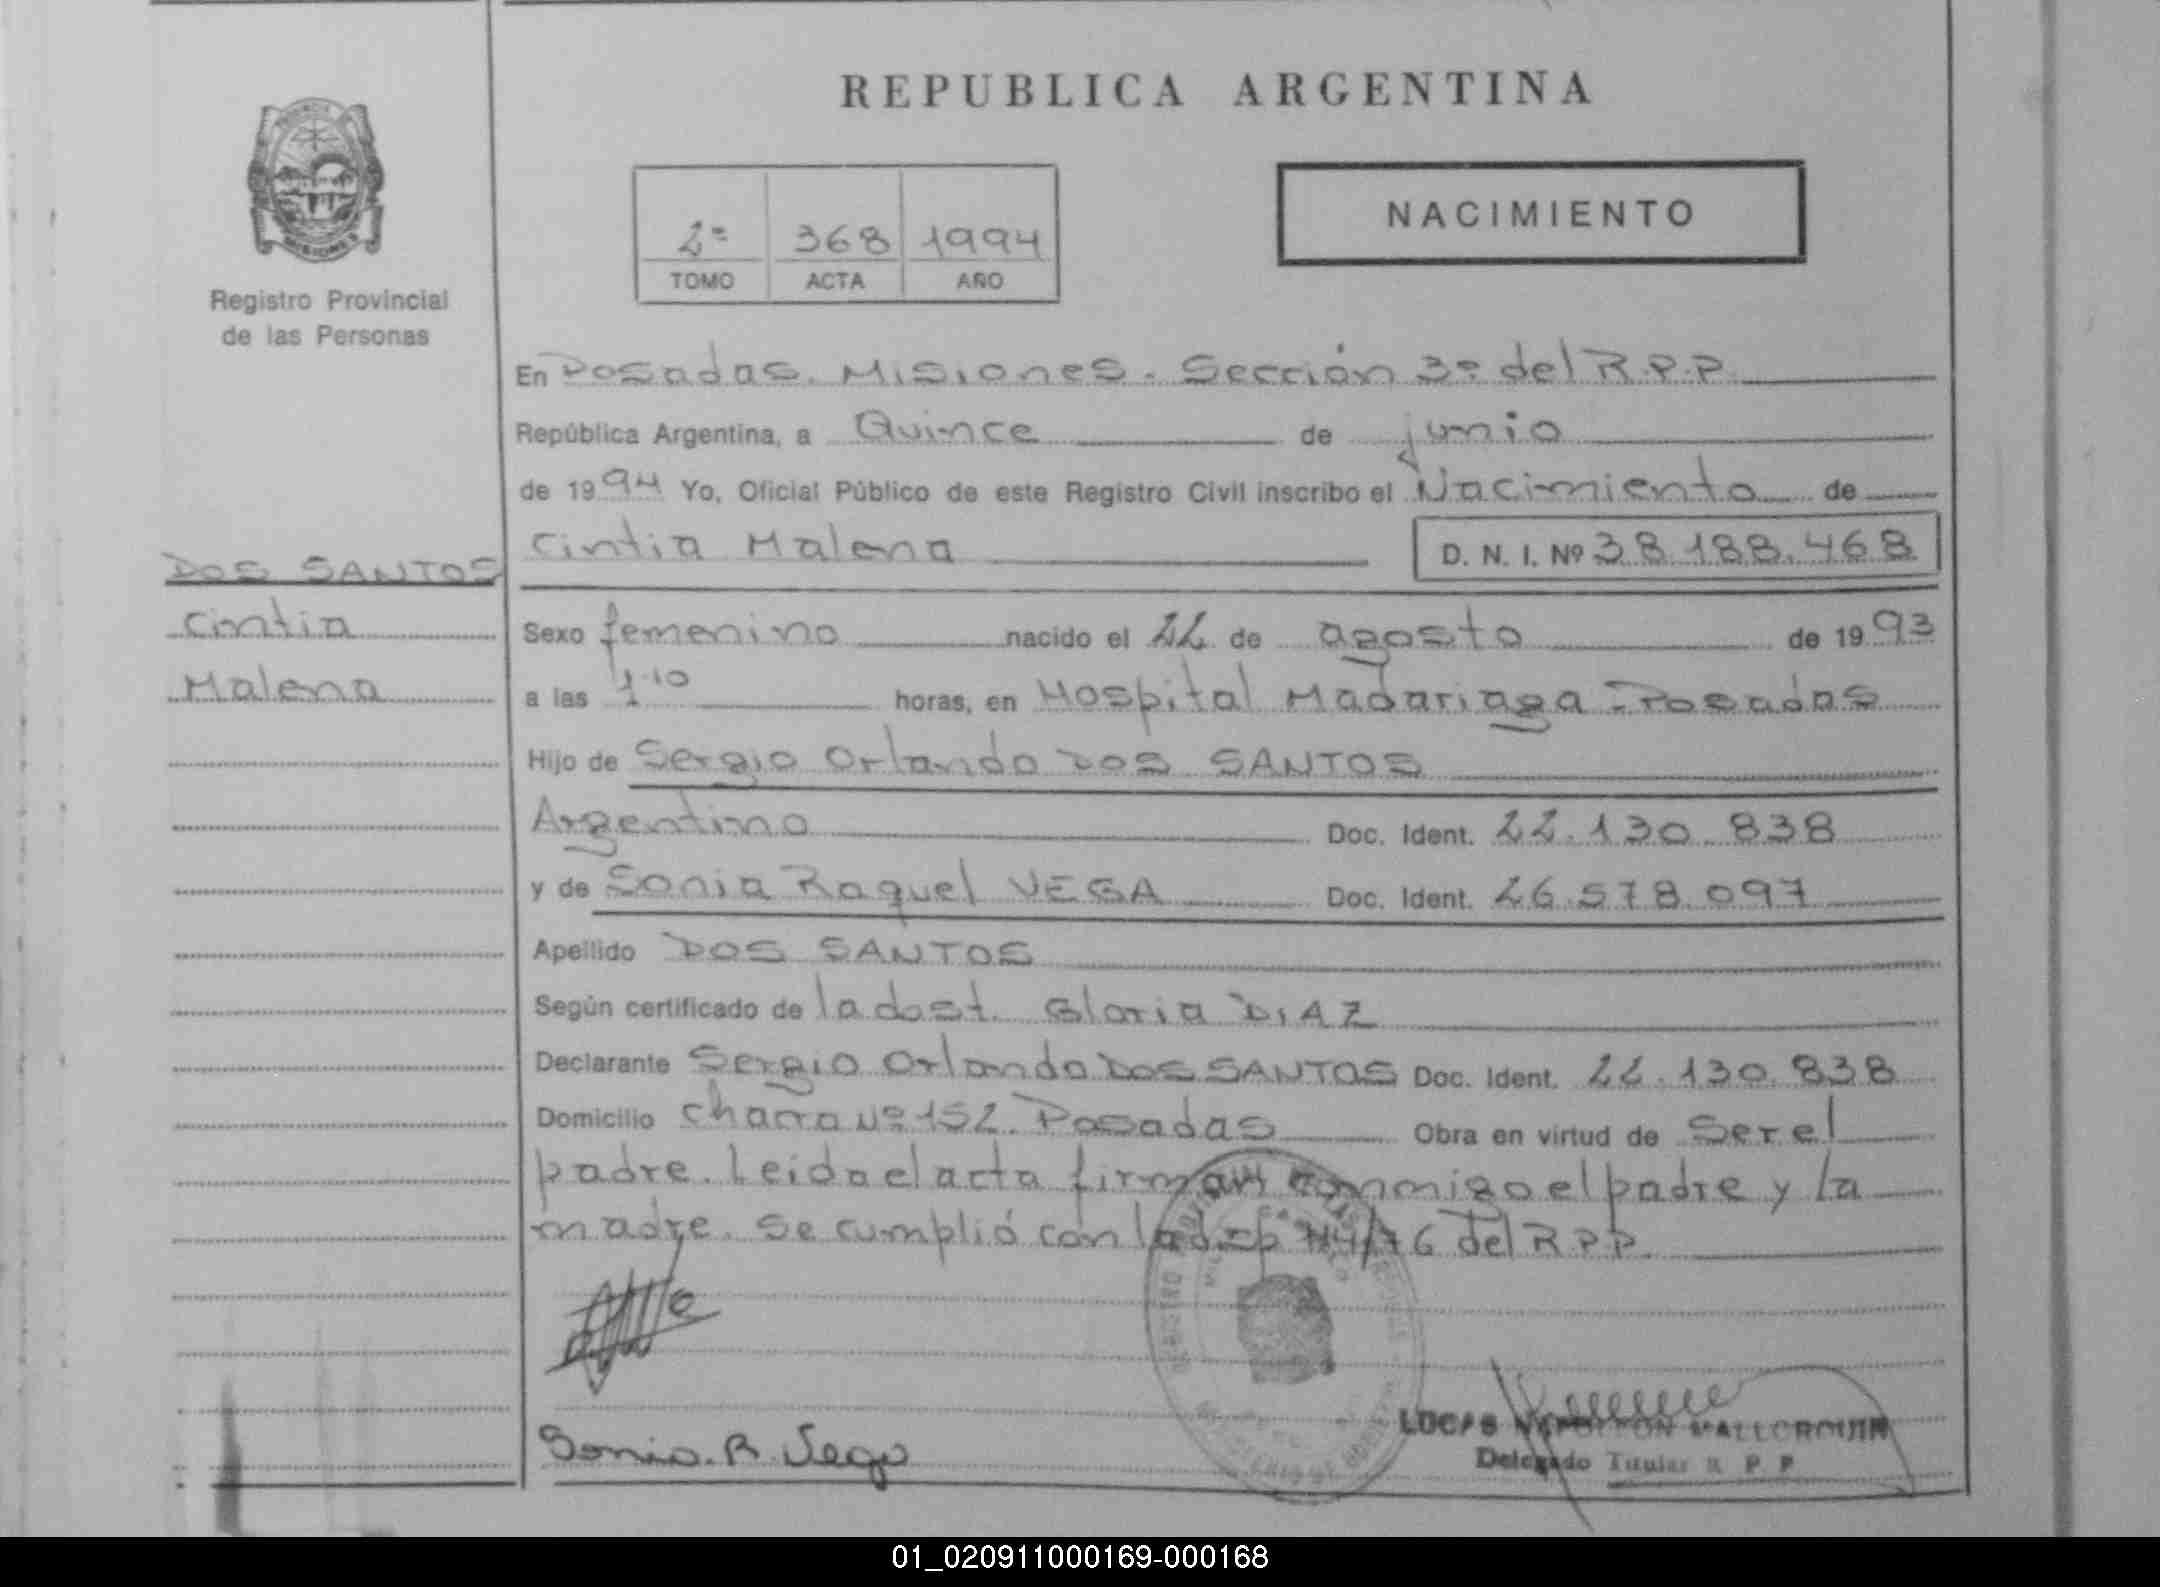 REPUBLICA ARGENTINA
NACIMIENTO
2º 368 1994
TOMO ACTA AÑO
Registro Provincial
de las Personas
En Posadas. Misiones. Sección 3º del R.P.P.
República Argentina, a Quince de junio
de 1994 Yo, Oficial Público de este Registro Civil inscribo el Nacimiento de
Cintia Malena D. N. I. Nº 38.188.468
DOS SANTOS
Cintia
Malena
Sexo femenino nacido el 22 de agosto de 1993
a las 1.10 horas, en Hospital Madariaga - Posadas
Hijo de Sergio Orlando DOS SANTOS
Argentino Doc. Ident. 22.130.838
y de Sonia Raquel VEGA Doc. Ident. 26.578.097
Apellido DOS SANTOS
Según certificado de la obst. Gloria DIAZ
Declarante Sergio Orlando DOS SANTOS Doc. Ident. 22.130.838
Domicilio Chacra Nº 152. Posadas Obra en virtud de Ser el
padre. Leida el acta firman conmigo el padre y la
madre. Se cumplió con la disp 74/76 del R.P.P.
Sonia. R. Vega
LUCAS MALLORQUIN
Delegado Titular R. P. P.
01_020911000169-000168